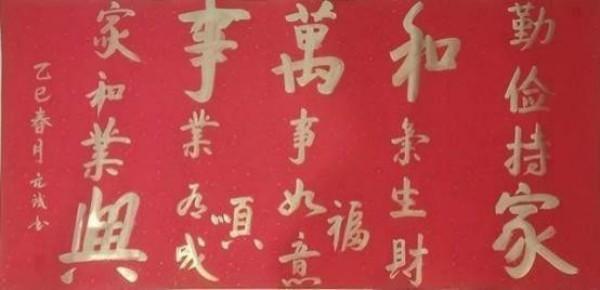 勤俭持家
和氣生財
福
萬事如意
順
事業有成
家和業興
乙巳春月